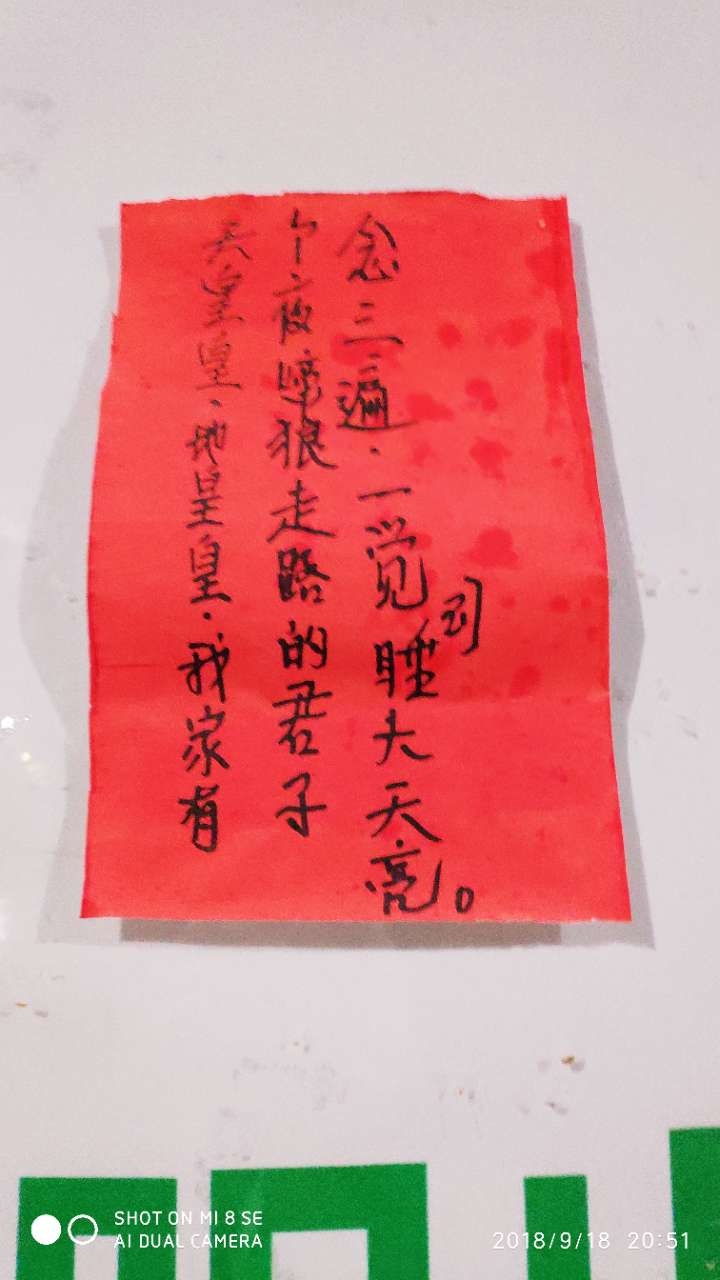 天皇皇.地皇皇.我家有
个夜啼狼走路的君子
念三遍.一觉睡到大天亮。
SHOT ON MI 8 SE
AI DUAL CAMERA
2018/9/18 20:51